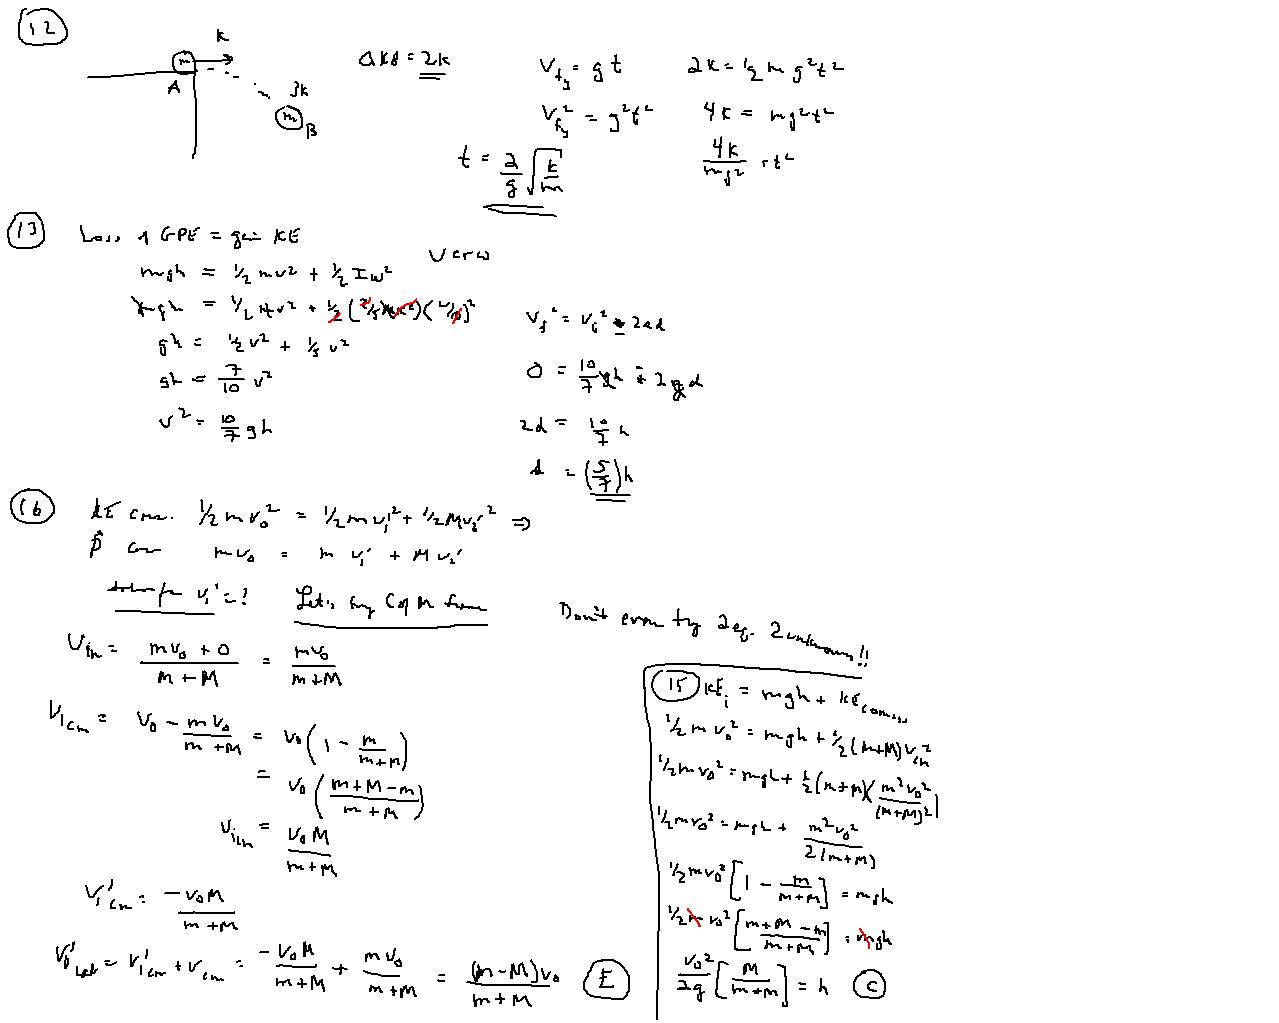 12
K
m
A
3K
m B
ΔKE = 2K
V_fy = g t
V_fy² = g²t²
t = 2/g √(K/m)
2K = ½ m g²t²
4K = mg²t²
4K/mg² = t²
13
Loss of GPE = gain KE
mgh = ½ mv² + ½ Iω²
V = rω
mgh = ½ Mv² + ½ (2/5 MR²)(v/R)²
gh = ½ v² + 1/5 v²
gh = 7/10 v²
v² = 10/7 gh
V_f² = V_i² ± 2ad
0 = 10/7 gh - 2gd
2d = 10/7 h
d = (5/7)h
16
KE cons. ½ m v₀² = ½ m v₁'² + ½ M v₂'² ⇒
p con mv₀ = m v₁' + M v₂'
solve for v₁' = ?
Let's try C of M frame
Don't even try 2 eq. 2 unknowns!!
= mv₀ + 0 / m + M = mv₀ / m+M
V₁cm = V₀ - mv₀/m+M = V₀(1 - m/m+M)
= V₀(m+M-m / m+M)
V₁cm = V₀M / m+M
V₁'cm = -V₀M / m+M
V₁'Lab = V₁'cm + Vcm = -V₀M/m+M + mv₀/m+M = (m-M)V₀ / m+M
E
15
KE_i = mgh +
½ m v₀² = mgh + ½ (m+M) V_cm²
½ m v₀² = mgh + ½ (m+M)(m²v₀² / (m+M)²)
½ m v₀² = mgh + m²v₀² / 2(m+M)
½ m v₀² [1 - m/m+M] = mgh
½ m v₀² [m+M-m / m+M] = mgh
V₀²/2g [M/m+M] = h
C